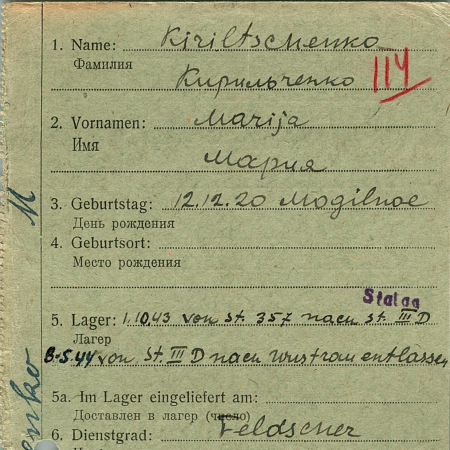 1. Name: Kiriltschenko
Фамилия
Кирильченко
114
2. Vornamen: Marija
Имя
Мария
3. Geburtstag: 12.12.20 Mogilnoe
День рождения
4. Geburtsort:
Место рождения
Stalag
5. Lager: 1.10.43 von St. 357 nach St. III D
Лагерь
8-5.44 von St. III D nach Wustrau entlassen
5a. Im Lager eingeliefert am:
Доставлен в лагерь (число)
6. Dienstgrad: Feldscher